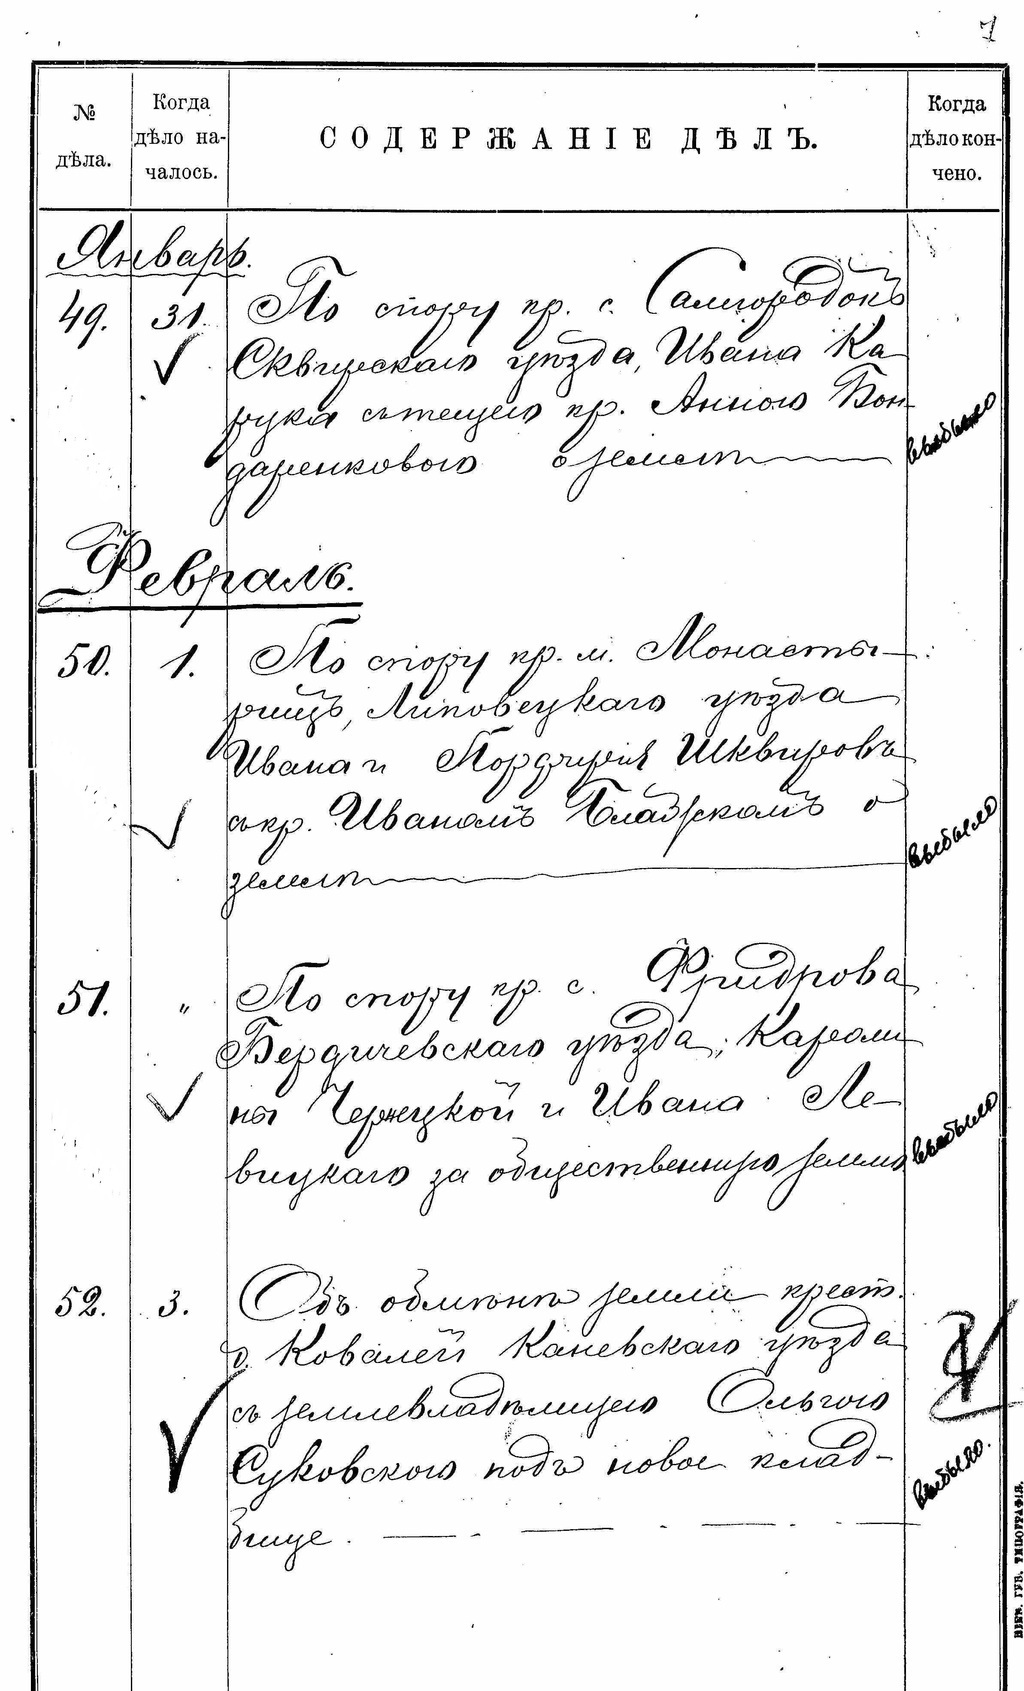 7
№ дѣла.
Когда дѣло на-
чалось.
СОДЕРЖАНІЕ ДѢЛЪ.
Когда дѣло кон-
чено.
Январь.
49. 31. По спору кр. с. Самгородокъ
Сквирскаго уѣзда, Ивана Ка
рука съ тещею кр. Анною Бон-
даренковою о землѣ
выбыло
Февраль.
50. 1. По спору кр. м. Монасты-
рищъ, Липовецкаго уѣзда
Ивана и Порфирія Шквировъ
съ кр. Иваномъ о
землѣ
выбыло
51. „ По спору кр. с. Фридрова
Бердичевскаго уѣзда, Кароли
ны Чержуцкой и Ивана Ле-
вицкаго за общественную землю
выбыло
52. 3. Объ обмѣнѣ земли крест.
д. Ковалей Каневскаго уѣзда
съ землевладѣлицею Ольгою
Суковскою подъ новое клад-
бище.
выбыло.
КІЕВ. ГУБ. ТИПОГРАФІЯ.